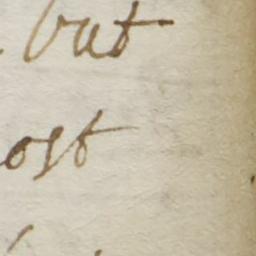 but
ost